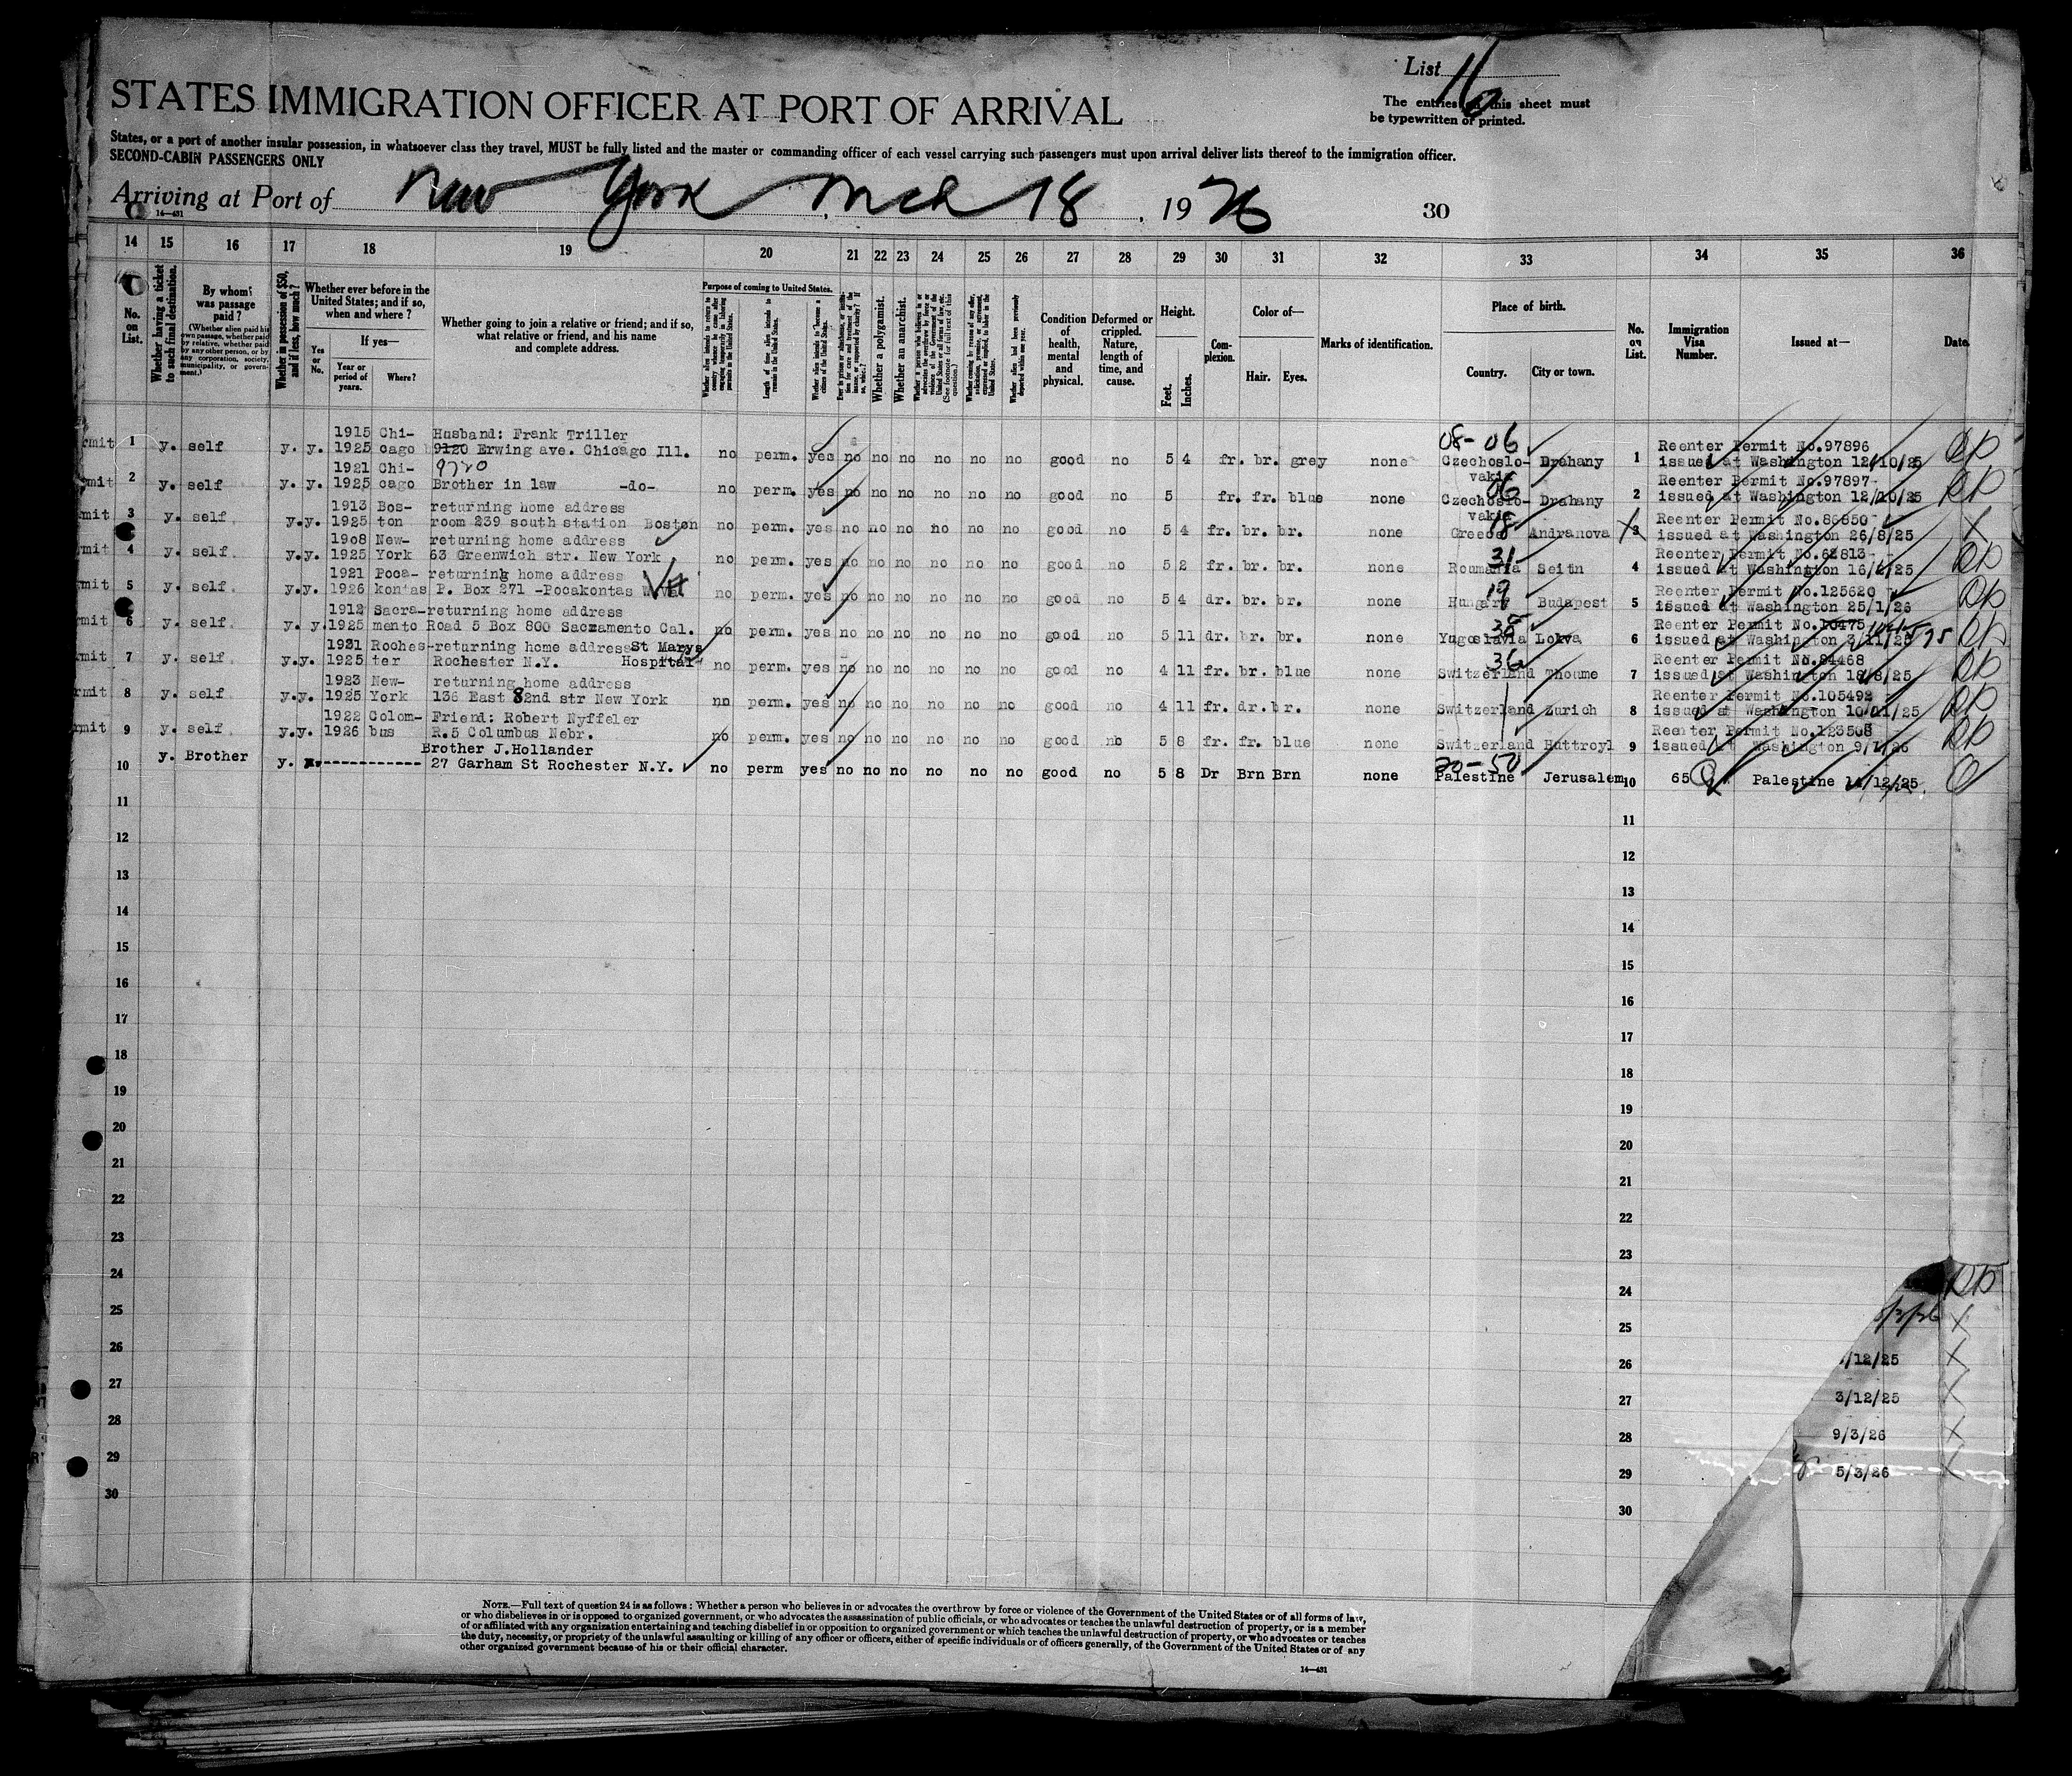 List 16
STATES IMMIGRATION OFFICER AT PORT OF ARRIVAL
The entries on this sheet must
be typewritten or printed.
States, or a port of another insular possession, in whatsoever class they travel, MUST be fully listed and the master or commanding officer of each vessel carrying such passengers must upon arrival deliver lists thereof to the immigration officer.
SECOND-CABIN PASSENGERS ONLY
Arriving at Port of New York Mch 18, 1926
14—431
30
14 15 16 17 18 19 20 21 22 23 24 25 26 27 28 29 30 31 32 33 34 35 36
No. on List.
Whether having a ticket to such final destination.
By whom was passage paid?
(Whether alien paid his own passage, whether paid by relative, whether paid by any other person, or by any corporation, society, municipality, or government.)
Whether in possession of $50, and if less, how much?
Whether ever before in the United States; and if so, when and where?
Yes or No.
If yes—
Year or period of years.
Where?
Whether going to join a relative or friend; and if so, what relative or friend, and his name and complete address.
Purpose of coming to United States.
Length of time alien intends to remain in the United States.
Whether alien intends to become a citizen of the United States.
Whether a polygamist.
Whether an anarchist.
Condition of health, mental and physical.
Deformed or crippled. Nature, length of time, and cause.
Height.
Feet.
Inches.
Complexion.
Color of—
Hair.
Eyes.
Marks of identification.
Place of birth.
Country.
City or town.
No. on List.
Immigration Visa Number.
Issued at—
Date
1915 Chi- Husband: Frank Triller 08-06 Reenter Permit No.97896
rmit 1 y. self y. y. 1925 cago 9120 Erwing ave. Chicago Ill. no perm. yes no no no no no no good no 5 4 fr. br. grey none Czechoslo- Drahany 1 issued at Washington 12/10/25
1921 Chi- 9720 vakia 06 Reenter Permit No.97897
mit 2 y. self y. y. 1925 cago Brother in law -do- no perm. yes no no no no no no good no 5 fr. fr. blue none Czechoslo- Drahany 2 issued at Washington 12/10/25
1913 Bos- returning home address vakia 18 Reenter Permit No.86850
mit 3 y. self y.y. 1925 ton room 239 south station Boston no perm. yes no no no no no no good no 5 4 fr. br. br. none Greece Andranova 3 issued at Washington 26/8/25
1908 New- returning home address 31 Reenter Permit No.62813
mit 4 y. self y.y. 1925 York 63 Greenwich str. New York no perm. yes no no no no no no good no 5 2 fr. br. br. none Roumania Seitn 4 issued at Washington 16/ /25
1921 Poca- returning home address 19 Reenter Permit No.125620
mit 5 y. self y.y. 1926 kontas P. Box 271 -Pocakontas W.Va. no perm. yes no no no no no no good no 5 4 dr. br. br. none Hungary Budapest 5 issued at Washington 25/1/26
1912 Sacra-returning home address Reenter Permit No.10475
mit 6 y. self y. y. 1925 mento Road 5 Box 800 Sacramento Cal. no perm. yes no no no no no no good no 5 11 dr. br. br. none Yugoslavia Lokva 6 issued at Washington 3/11/25
1921 Roches-returning home address St Marys 36 Reenter Permit No.84468
mit 7 y. self y.y. 1925 ter Rochester N.Y. Hospital no perm. yes no no no no no no good no 4 11 fr. br. blue none Switzerland Thoume 7 issued at Washington 18/8/25
1923 New- returning home address Reenter Permit No.105492
rmit 8 y. self y.y. 1925 York 136 East 82nd str New York no perm. yes no no no no no no good no 4 11 fr. dr. br. none Switzerland Zurich 8 issued at Washington 10/11/25
1922 Colom- Friend: Robert Nyffeler Reenter Permit No.123508
rmit 9 y. self y.y. 1926 bus R.5 Columbus Nebr. no perm. yes no no no no no no good no 5 8 fr. fr. blue none Switzerland Huttroyl 9 issued at Washington 9/1/26
Brother J.Hollander 20-50
10 y. Brother y. ------------- 27 Garham St Rochester N.Y. no perm yes no no no no no no good no 5 8 Dr Brn Brn none Palestine Jerusalem 10 65 Palestine 14/12/25
11 11
12 12
13 13
14 14
15 15
16 16
17 17
18 18
19 19
20 20
21 21
22 22
23 23
24 24
25 25
26 26 /12/25
27 27 3/12/25
28 28 9/3/26
29 29 5/3/26
30 30
NOTE.—Full text of question 24 is as follows: Whether a person who believes in or advocates the overthrow by force or violence of the Government of the United States or of all forms of law,
or who disbelieves in or is opposed to organized government, or who advocates the assassination of public officials, or who advocates or teaches the unlawful destruction of property, or is a member
of or affiliated with any organization entertaining and teaching disbelief in or opposition to organized government or which teaches the unlawful destruction of property, or who advocates or teaches
the duty, necessity, or propriety of the unlawful assaulting or killing of any officer or officers, either of specific individuals or of officers generally, of the Government of the United States or of any
other organized government because of his or their official character.
14—431